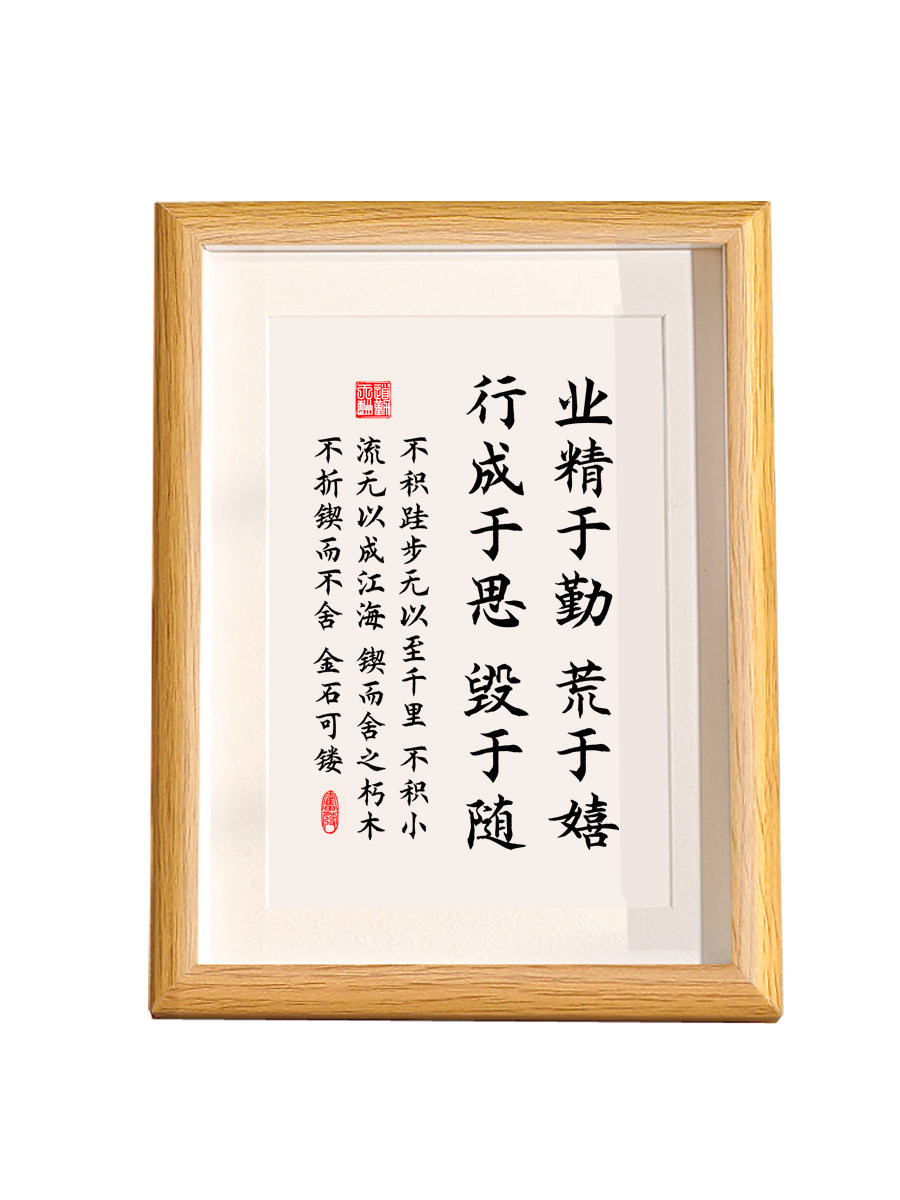 业精于勤 荒于嬉
行成于思 毁于随
不积跬步无以至千里 不积小
流无以成江海 锲而舍之朽木
不折锲而不舍 金石可镂
天道酬勤